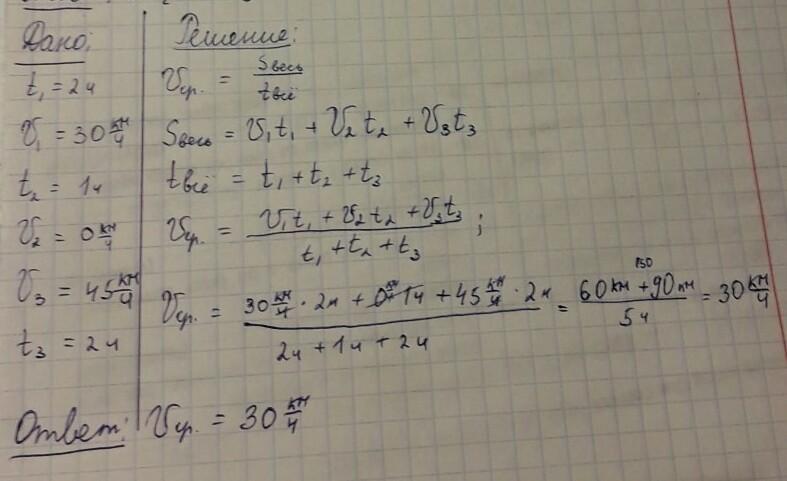 Дано:
t₁ = 2ч
V₁ = 30 км/ч
t₂ = 1ч
V₂ = 0 км/ч
V₃ = 45 км/ч
t₃ = 2ч
Решение:
Vср. = Sвесь / tвсё
Sвесь = V₁t₁ + V₂t₂ + V₃t₃
tвсё = t₁ + t₂ + t₃
Vср. = (V₁t₁ + V₂t₂ + V₃t₃) / (t₁ + t₂ + t₃) ;
150
Vср. = (30 км/ч · 2ч + 0 км/ч · 1ч + 45 км/ч · 2ч) / (2ч + 1ч + 2ч) = (60км + 90км) / 5ч = 30 км/ч
Ответ: Vср. = 30 км/ч